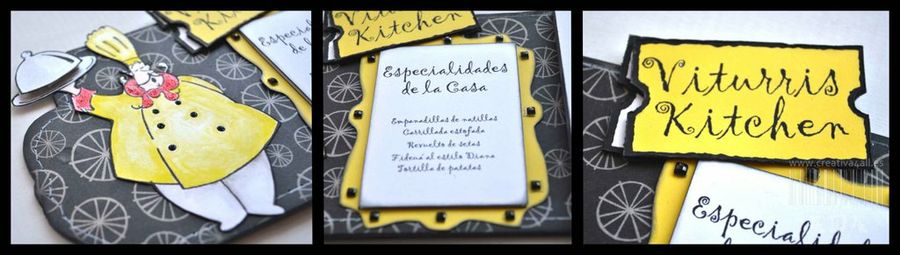 Kitchen
Especialida
de la
Viturris
Kitchen
Especialidades
de la Casa
Empanadillas de natillas
Carrillada estofada
Revuelto de setas
Fideuá al estilo Diana
Tortilla de patatas
Viturris
Kitchen
www.creativa4all.es
Especialidades